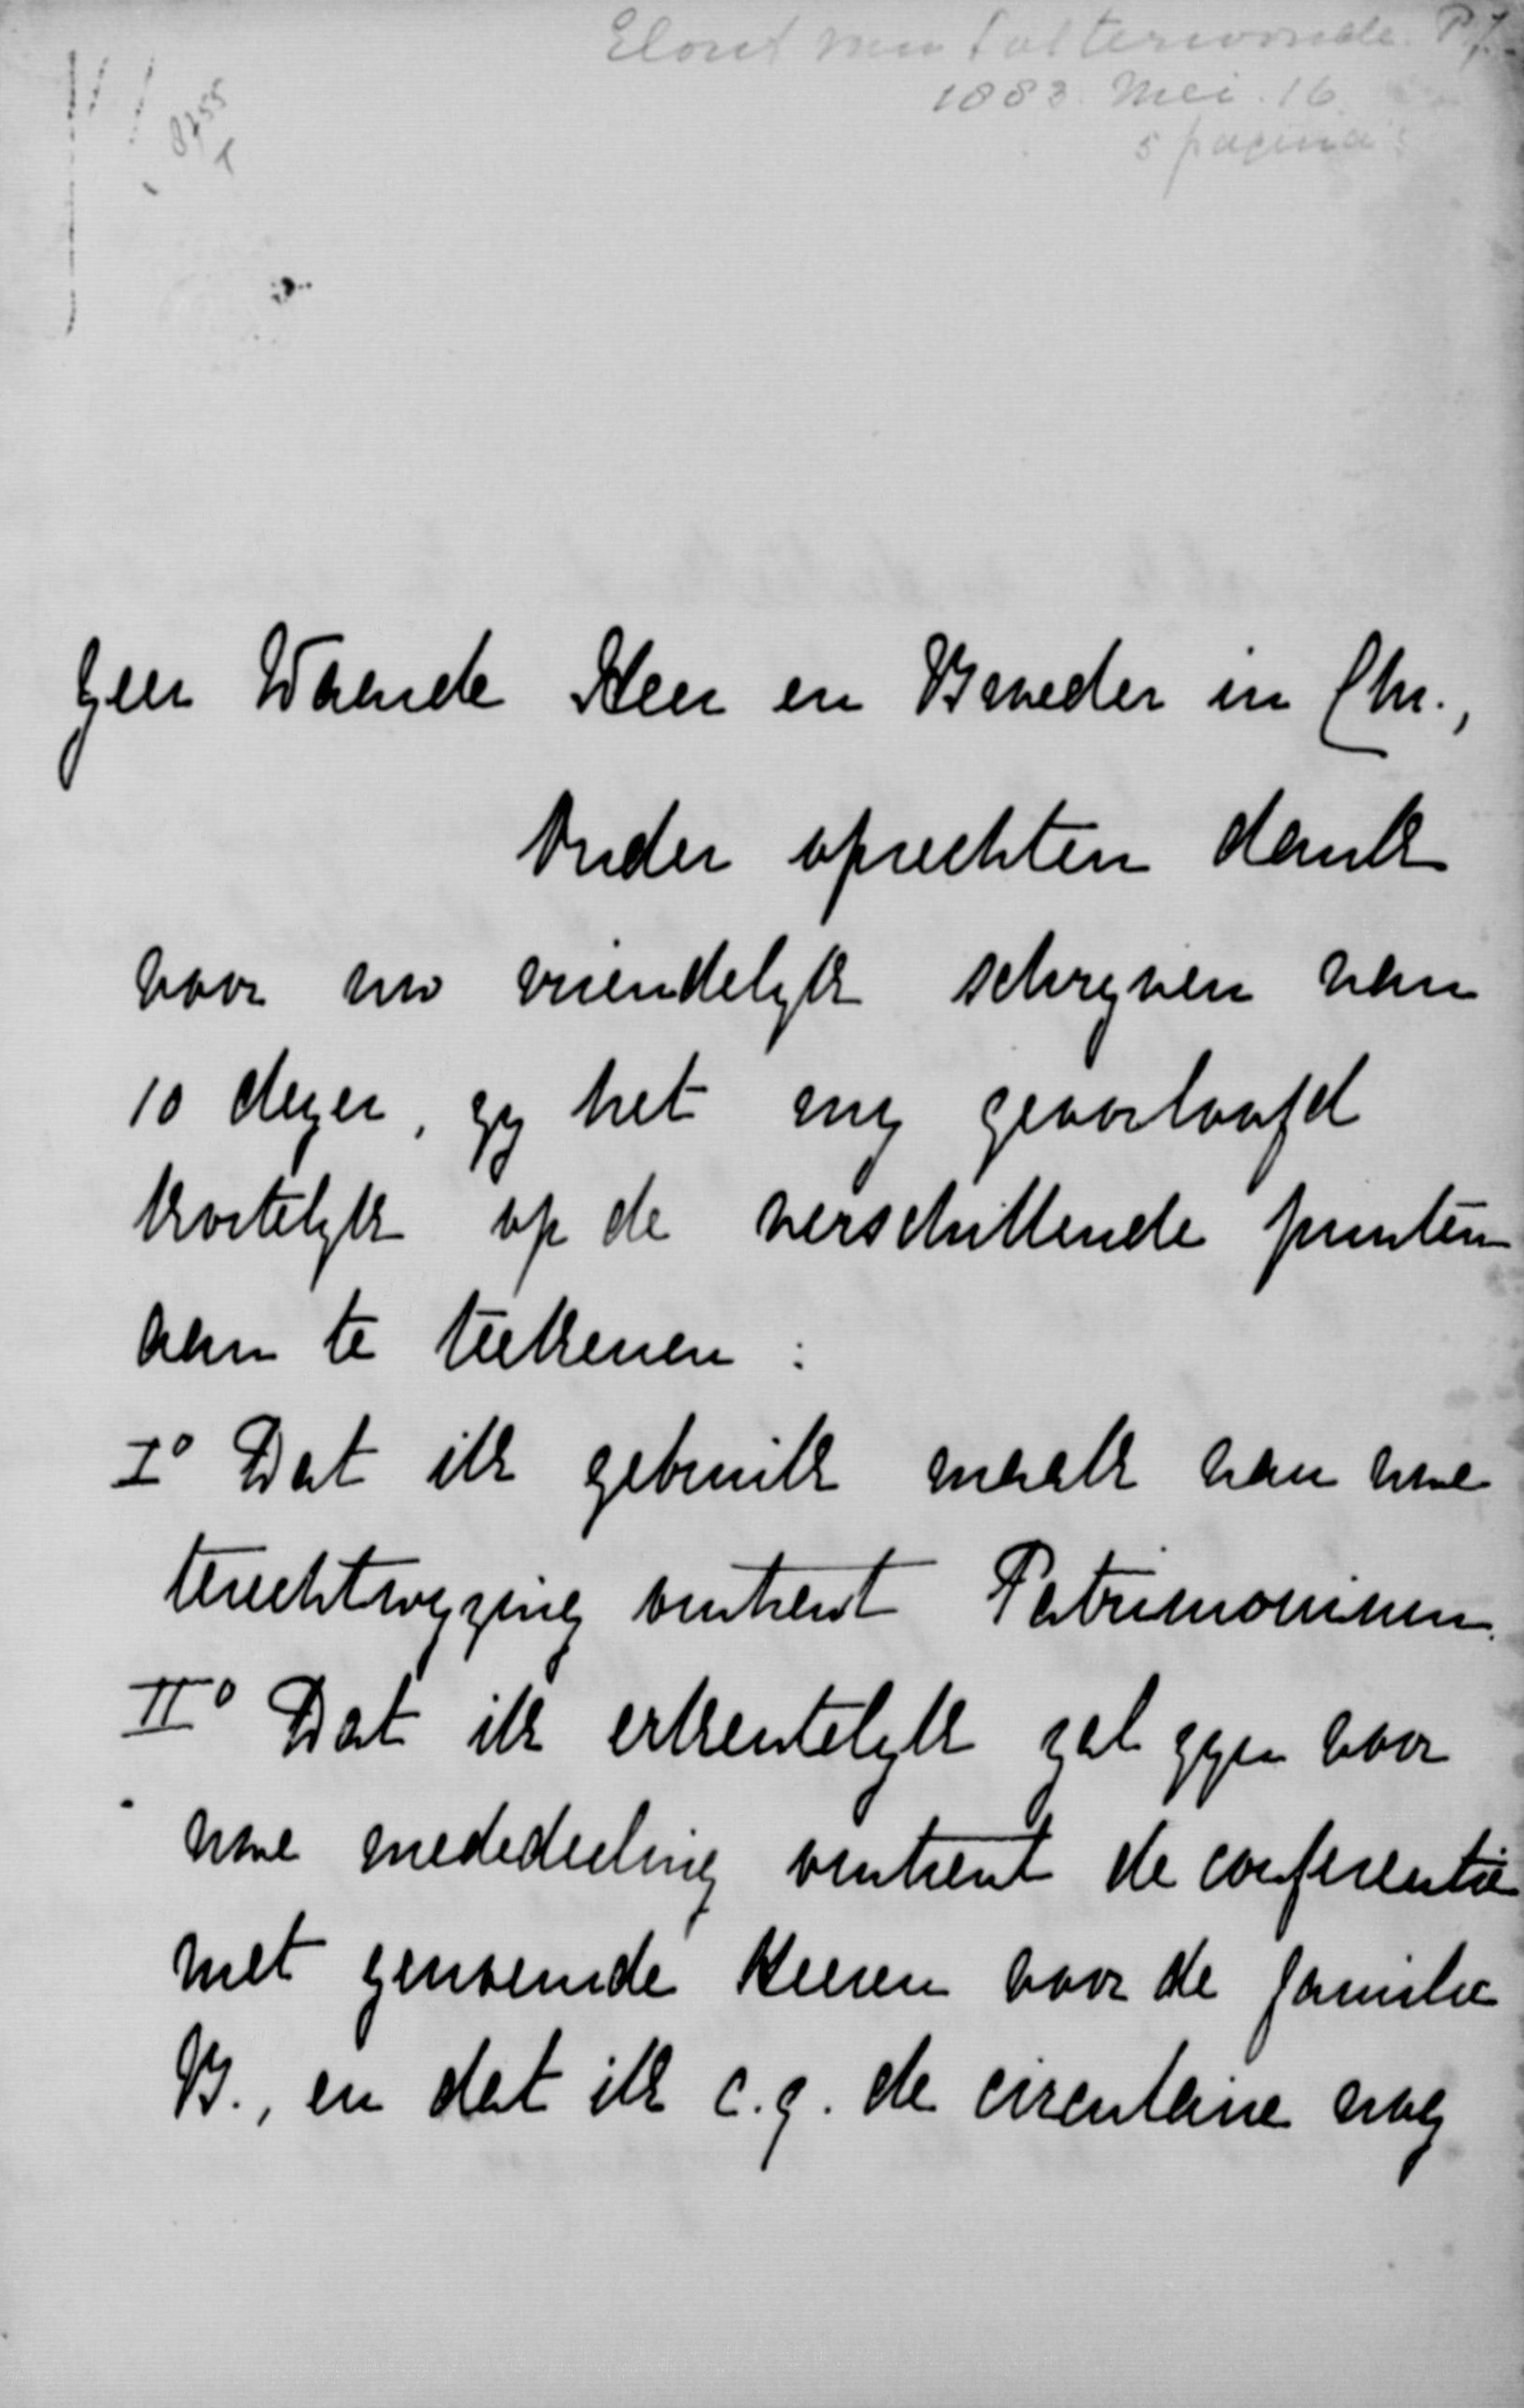 Elout van Soeterwoude. P.J.
1883. Mei. 16
5 pagina's
8755
Zeer Waarde Heer en Broeder in Chr.,
Onder oprechten dank
voor uw vriendelyk schryven van
10 dezer, zy het my geoorloofd
kortelyk op de verschillende punten
aan te teekenen :
I° Dat ik gebruik maak van uwe
terechtwyzing omtrent Patrimonium.
II° Dat ik erkentelyk zal zyn voor
uwe mededeeling omtrent de conferentie
met genoemde Heeren voor de familie
B., en dat ik c.q. de circulaire nog